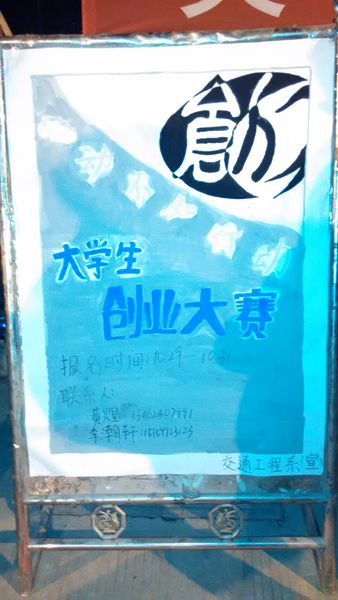 創
心动不如行动
大学生
创业大赛
报名时间:10.29—10.31
联系人:
李瀚轩:
交通工程系(宣)